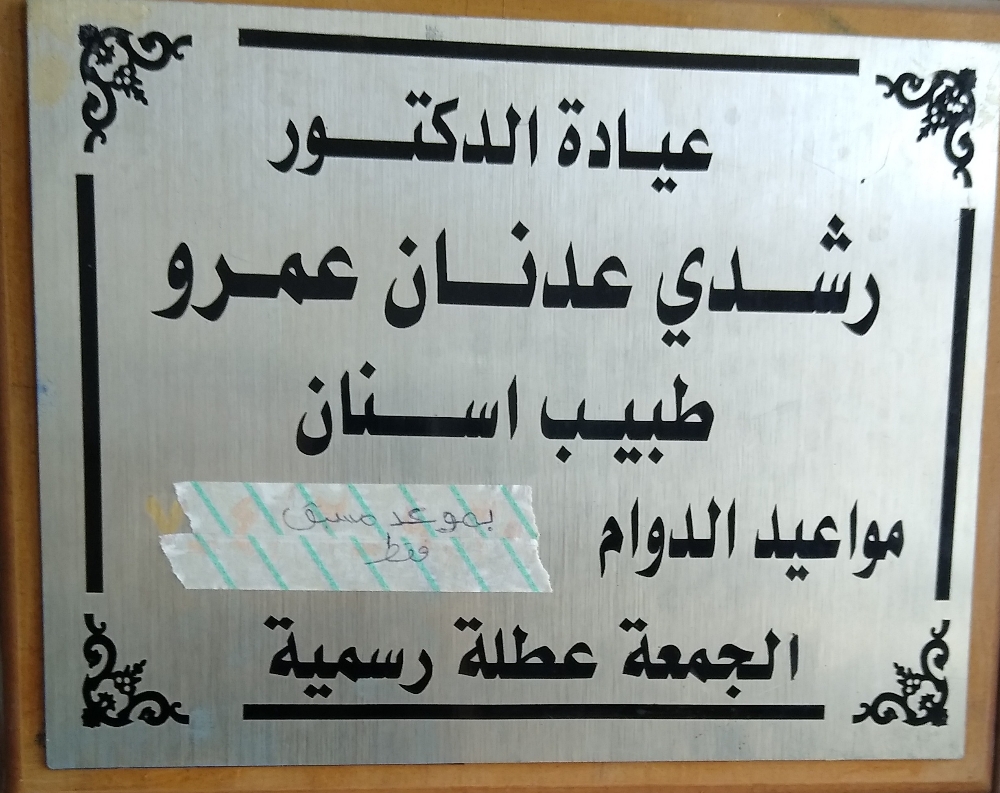 عيادة الدكتور
رشدي عدنان عمرو
طبيب اسنان
مواعيد الدوام بموعد مسبق
فقط
الجمعة عطلة رسمية